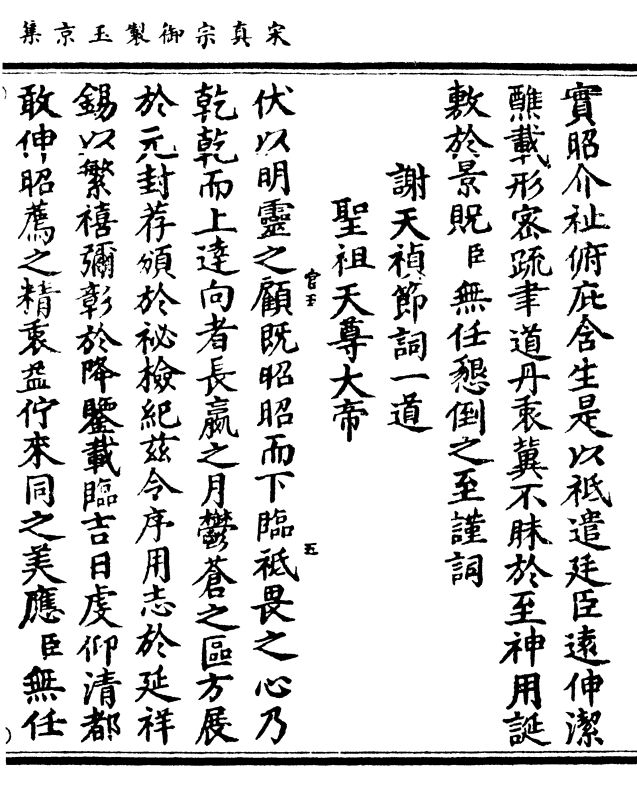 宋真宗御製玉京集
實昭介祉俯庇含生是以祗遣廷臣遠伸潔
醮載形密疏聿道丹衷冀不昧於至神用誕
敷於景貺臣無任懇倒之至謹詞
謝天禎節詞一道
聖祖天尊大帝
伏以明靈之顧既昭昭而下臨祗畏之心乃
乾乾而上達向者長嬴之月鬱蒼之區方展
於元封荐頒於祕檢紀茲令序用志於延祥
錫以繁禧彌彰於降鑒載臨吉日虔仰清都
敢伸昭薦之精衷益佇來同之美應臣無任
宮玉
五